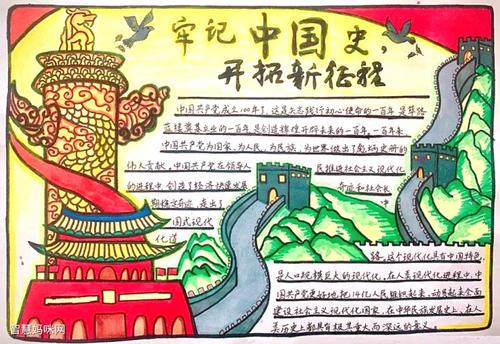 牢记中国史，
开拓新征程
中国共产党成立100年了，这是矢志践行初心使命的一百年，是筚路
蓝缕奠基立业的一百年，是创造辉煌开辟未来的一百年。一百年来，
中国共产党为国家、为人民、为民族、为世界做出了彪炳史册的
伟大贡献。中国共产党在领导人
民推进社会主义现代化
的进程中，创造了经济快速发展
奇迹和社会长
期稳定奇迹，走出了
中
国式现代
化道
路。这个现代化具有中国特色，
是人口规模巨大的现代化，在人类现代化进程中，中
国共产党更好地把14亿人民组织起来、动员起来全面
建设社会主义现代化国家，在中华民族发展史上、在人
类历史上都具有极其重大而深远的意义。
智慧妈咪网